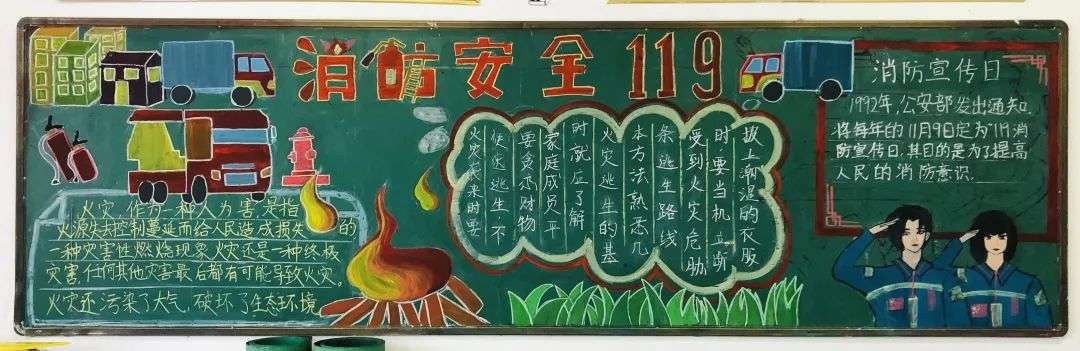 消防安全119
火灾,作为一种人为害,是指
火源失去控制蔓延而给人民造成损失的
一种灾害性燃烧现象,火灾还是一种终极
灾害,任何其他灾害最后都有可能导致火灾。
火灾还污染了大气,破坏了生态环境
火灾袭来时要
逃生不
要贪恋财物
家庭成员平
时就应了解
火灾逃生的基
本方法熟悉几
条逃生路线
受到火灾危胁
时要当机立断
披上潮湿的衣服
消防宣传日
1992年,公安部发出通知,
将每年的11月9日定为"119消
防宣传日.其目的是为了提高
人民的消防意识.